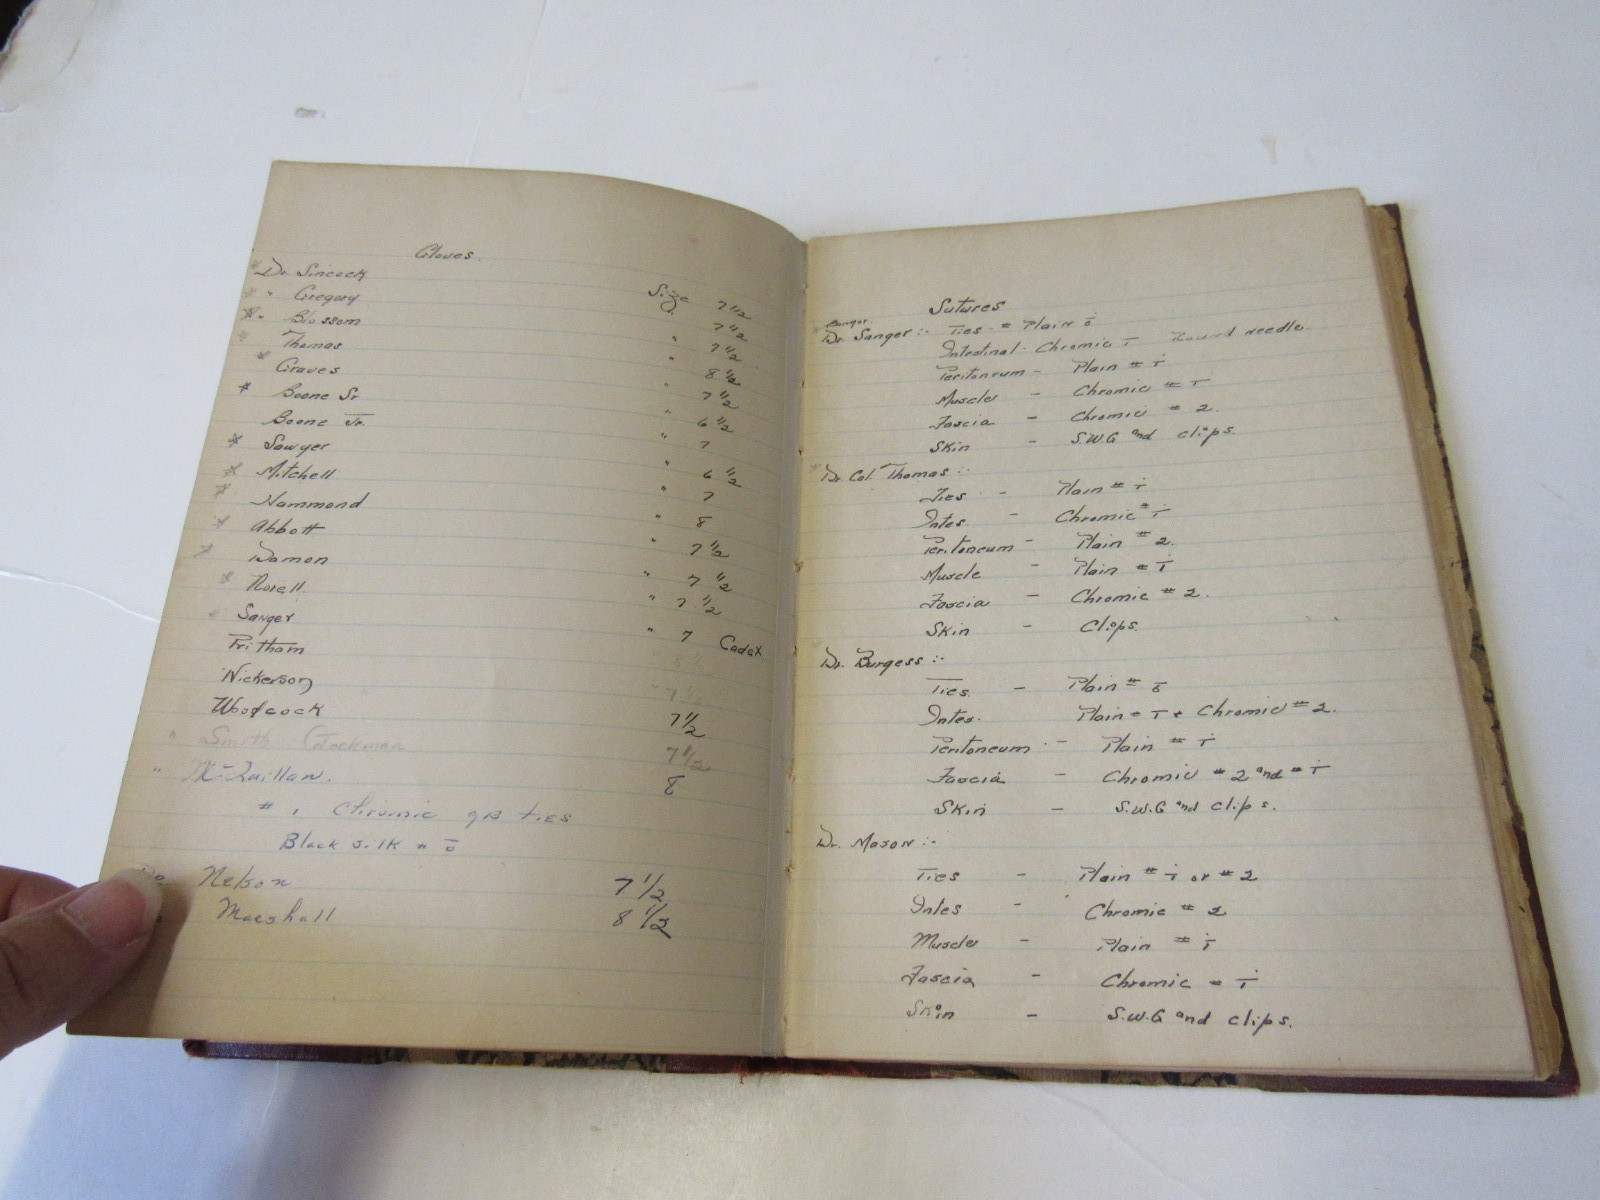 Gloves.
Dr. Sincock Size 7 1/2
" Gregory 7 1/2
" Blossom " 7 1/2
Thomas " 8 1/2
Graves " 7 1/2
Boone Sr " 6 1/2
Boone Jr. " 7
Sawyer " 6 1/2
Mitchell " 7
Hammond " 8
Abbott " 7 1/2
Damon " 7 1/2
Norell " 7 1/2
Sanger " 7 Cadex
Pritham 8 1/2
Nickerson " 7 1/2
Woodcock 7 1/2
" Smith 7 1/2
" 8
# 1 Chromic ties
Black silk " ō
Nelson 7 1/2
Marshall 8 1/2
Sutures
Bangor.
Dr. Sanger :- Ties - # Plain ō
Intestinal - Chromic ī Round needle
Peritoneum - Plain # ī
Muscle - Chromic # ī
Fascia - Chromic # 2.
Skin - S.W.G and clips.
Dr. Col. Thomas :-
Ties - Plain # ī
Intes. - Chromic # ī
Peritoneum - Plain # 2.
Muscle - Plain # ī
Fascia - Chromic # 2.
Skin - Clips.
Dr. Burgess :-
Ties. - Plain # ō
Intes. Plain # ī + Chromic # 2.
Peritoneum - Plain # ī
Fascia - Chromic # 2 and # ī
Skin - S.W.G and clips.
Dr. Mason :-
Ties - Plain # ī or # 2
Intes - Chromic # 2
Muscle - Plain # ī
Fascia - Chromic # ī
Skin - S.W.G and clips.